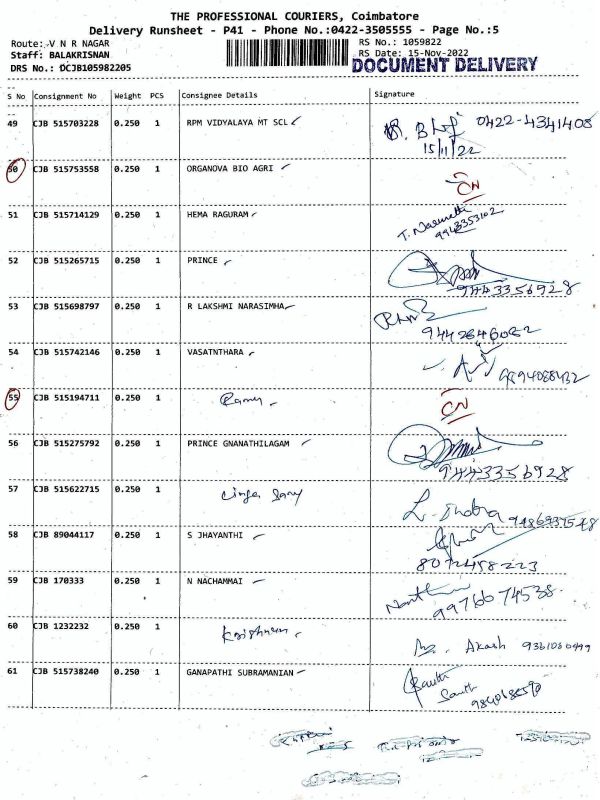 THE PROFESSIONAL COURIERS, Coimbatore
Delivery Runsheet - P41 - Phone No.:0422-3505555 - Page No.:5
Route: V N R NAGAR RS No.: 1059822
Staff: BALAKRISNAN RS Date: 15-Nov-2022
DRS No.: DCJB105982205 DOCUMENT DELIVERY
S No Consignment No Weight PCS Consignee Details Signature
49 CJB 515703228 0.250 1 RPM VIDYALAYA MT SCL 0422-4341408
15/11/22
50 CJB 515753558 0.250 1 ORGANOVA BIO AGRI CN
51 CJB 515714129 0.250 1 HEMA RAGURAM
9943353102
52 CJB 515265715 0.250 1 PRINCE
9443356928
53 CJB 515698797 0.250 1 R LAKSHMI NARASIMHA
54 CJB 515742146 0.250 1 VASATNTHARA
55 CJB 515194711 0.250 1 Ramy CN
56 CJB 515275792 0.250 1 PRINCE GNANATHILAGAM
9443356928
57 CJB 515622715 0.250 1
58 CJB 89044117 0.250 1 S JHAYANTHI
8072458223
59 CJB 170333 0.250 1 N NACHAMMAI
9976674538
60 CJB 1232232 0.250 1 Krishnan Akash
61 CJB 515738240 0.250 1 GANAPATHI SUBRAMANIAN